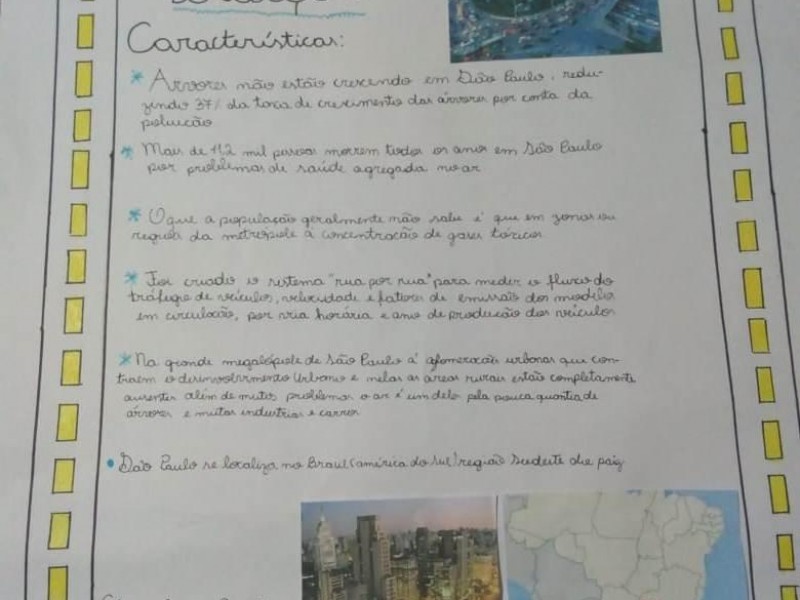 Características:
* Arvores não estão crescendo em São Paulo, redu-
zindo 37% da taxa de crescimento das árvores por conta da
poluição
* Mais de 11,2 mil pessoas morrem todos os anos em São Paulo
por problemas de saúde agregada no ar
* O que a população geralmente não sabe é que em zonas ou
região da metrópole á concentração de gases tóxicos
* Foi criado o sistema "rua por rua" para meder o fluxo do
tráfego de veículos, velocidade e fatores de emissão dos modelo
em circulação, por via horária e ano de produção dos veículos
* Na grande megalópole de São Paulo á aglomeração urbanas que con-
traem o desenvolvimento Urbano e nelas as areas rurais estão completamente
ausentes além de muitos problemas o ar é um delo pela pouca quantia de
árvores e muitas industrias e carros
• São Paulo se localiza no Brasil (américa do Sul) região Sudeste do paiz